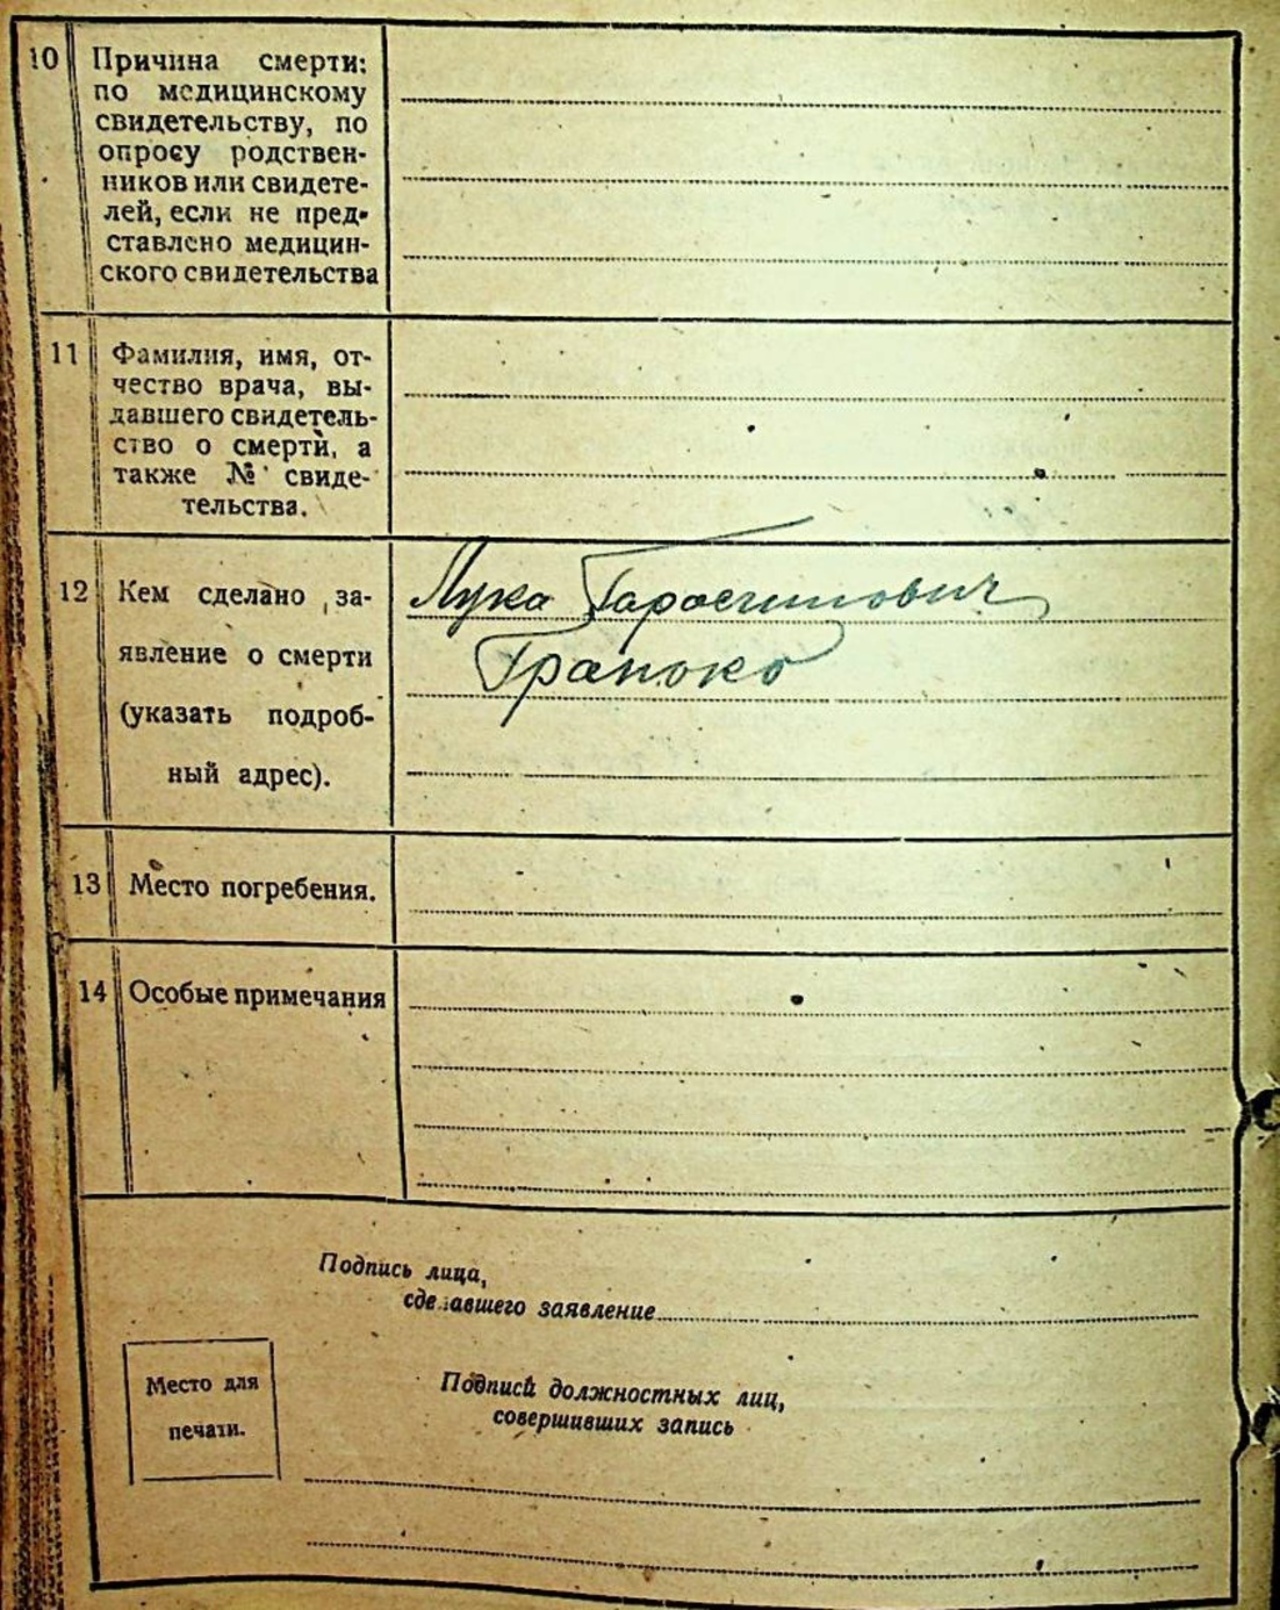 10 Причина смерти:
по медицинскому
свидетельству, по
опросу родствен-
ников или свидете-
лей, если не пред-
ставлено медицин-
ского свидетельства
11 Фамилия, имя, от-
чество врача, вы-
давшего свидетель-
ство о смерти, а
также № свиде-
тельства.
12 Кем сделано за-
явление о смерти
(указать подроб-
ный адрес).
Лука
13 Место погребения.
14 Особые примечания
Подпись лица,
сделавшего заявление
Место для
печати.
Подписи должностных лиц,
совершивших запись